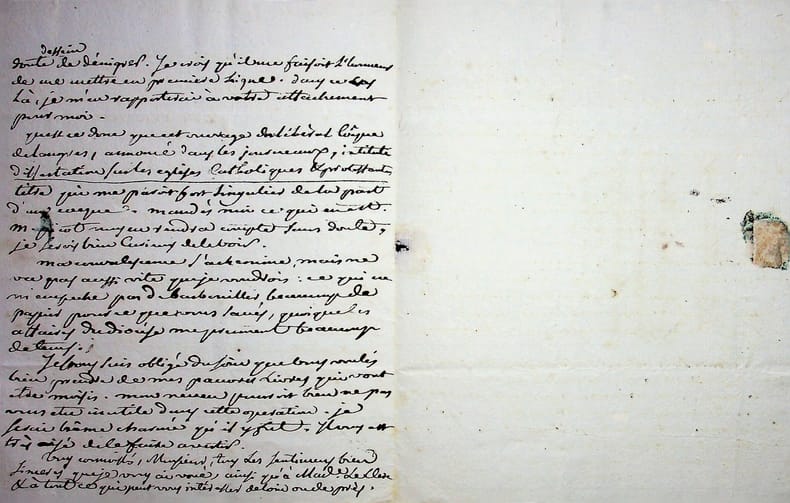 dessein
doute de dénigrer. Je crois qu'il me faisoit l'honneur
de me mettre en premiere ligne. dans ce cas
là, je m'en rapporterois à votre attachement
pour moi.
qu'est ce donc que cet ouvrage du libéral Evêque
de Langres, annoncé dans les journeaux, intitulé
dissertation sur les eglises Catholiques & protestantes
titre qui me paroit fort singulier de la part
d'un eveque. mandés moi ce qui en est.
m. picot nous en rendra compte sans doute,
je serois bien curieux de le voir.
ma convalescence s'achemine, mais ne
va pas aussi vite que je voudrois: ce qui ne
m'empeche pas de barbouiller beaucoup de
papier pour ce que vous savés, quoique les
affaires du diocese me prennent beaucoup
de tems.
Je vous suis obligé du soin que vous voulés
bien prendre de mes pauvres livres qui vont
etre moisis. mon neveu pourroit bien ne pas
vous etre inutile dans cette operation. je
serai même charmé qu'il y fut. Il vous est
très aisé de le faire avertir.
Vous connoissés, Monsieur, tous les sentimens bien
sinceres que je vous ai voué, ainsi qu'à Made. Leclere
& à tout ce qui peut vous intéresser de loin ou de près.